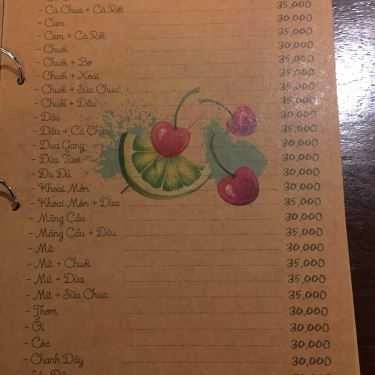 - Cà Chua + Cà Rốt 35,000
- Cam 30,000
- Cam + Cà Rốt 35,000
- Chuối 30,000
- Chuối + Bơ 35,000
- Chuối + Xoài 35,000
- Chuối + Sữa Chua 35,000
- Chuối + Dâu 35,000
- Dâu 30,000
- Dâu + Cà Chua 35,000
- Dưa Gang 30,000
- Dừa Tắc 30,000
- Đu Đủ 30,000
- Khoai Môn 30,000
- Khoai Môn + Dừa 35,000
- Mãng Cầu 30,000
- Mãng Cầu + Dâu 35,000
- Mít 30,000
- Mít + Chuối 35,000
- Mít + Dừa 35,000
- Mít + Sữa Chua 35,000
- Thơm 30,000
- Ổi 30,000
- Cóc 30,000
- Chanh Dây 30,000
30,000